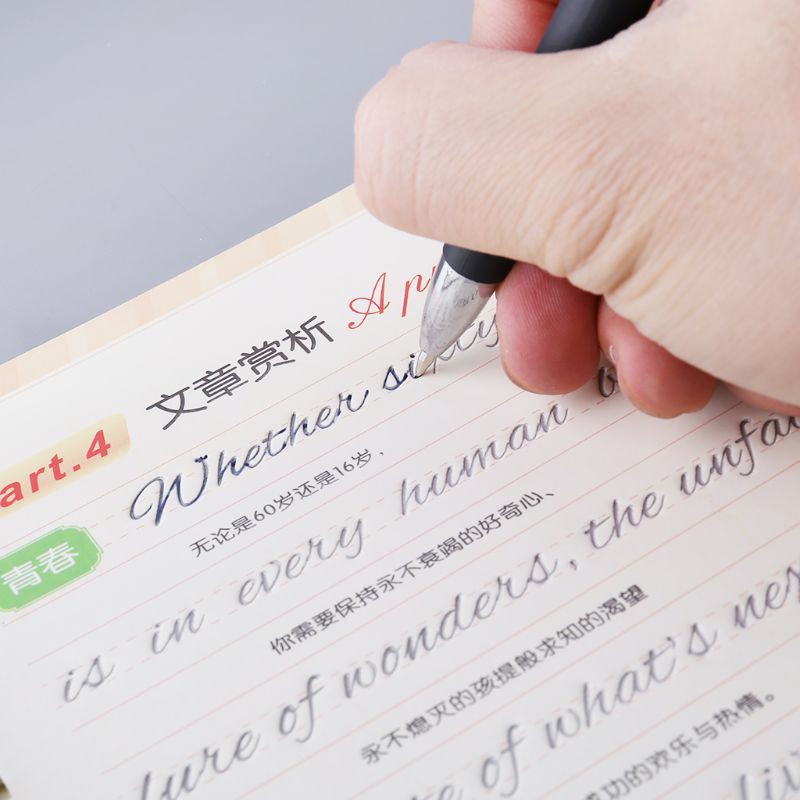 art.4 文章赏析 Ap
青春 Whether sixty
无论是60岁还是16岁，
is in every human
你需要保持永不衰竭的好奇心、
lure of wonders, the unfai
永不熄灭的孩提般求知的渴望
of what's
成功的欢乐与热情。